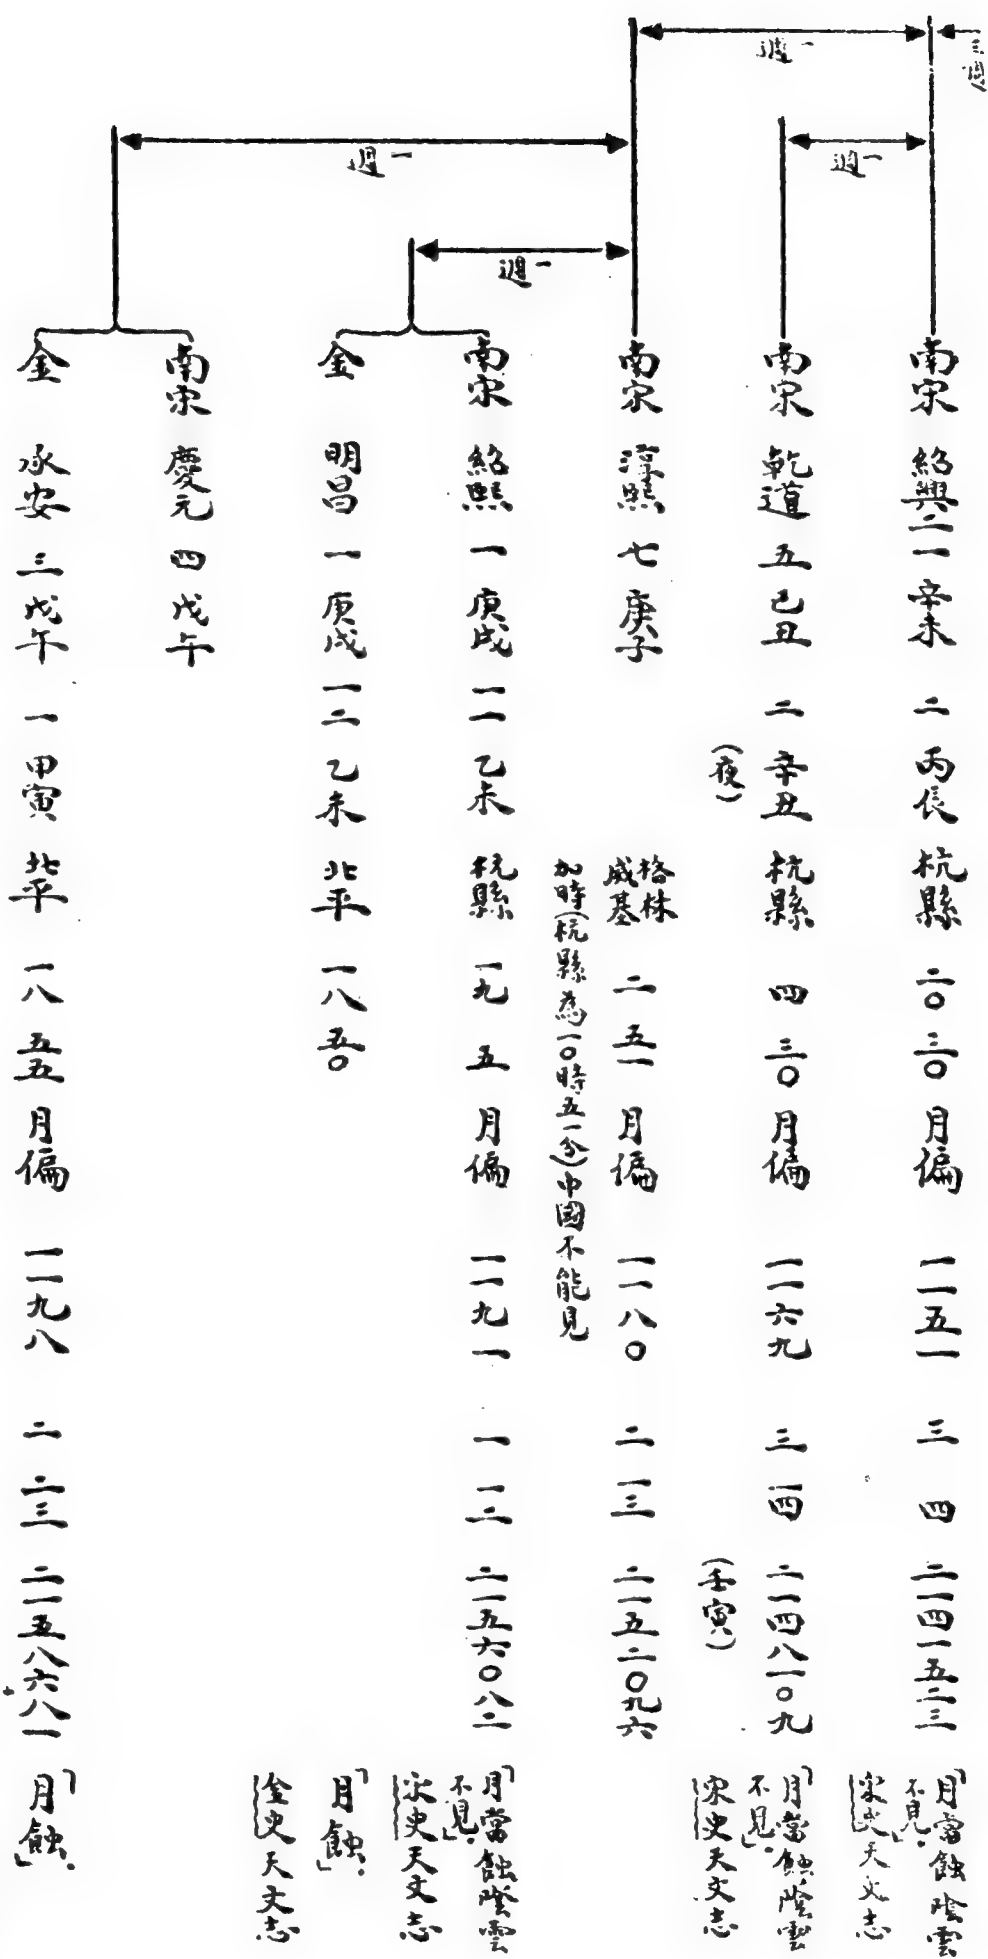 三週
一週
一週
一週
一週
南宋 紹興二一 辛未 二 丙辰 杭縣 二〇 三〇 月偏 一一五一 三 四 二一四一五二三 「月當蝕陰雲
不見」。
宋史天文志
南宋 乾道 五 己丑 二 辛丑 杭縣 四 三〇 月偏 一一六九 三 一四 二一四八一〇九 「月當蝕陰雲
(夜) (壬寅) 不見」。
宋史天文志
南宋 淳熙 七 庚子 格林威基 二 五一 月偏 一一八〇 二 一三 二一五二〇九六
加時(杭縣為一〇時五一分)中國不能見
南宋 紹熙 一 庚戌 一一 乙未 杭縣 一九 五 月偏 一一九一 一 一二 二一五六〇八二 「月當蝕陰雲
不見」。
宋史天文志
金 明昌 一 庚戌 一二 乙未 北平 一八 五〇 「月蝕」。
金史天文志
南宋 慶元 四 戊午
金 承安 三 戊午 一 甲寅 北平 一八 五五 月偏 一一九八 二 二三 二一五八六八一 「月蝕」。